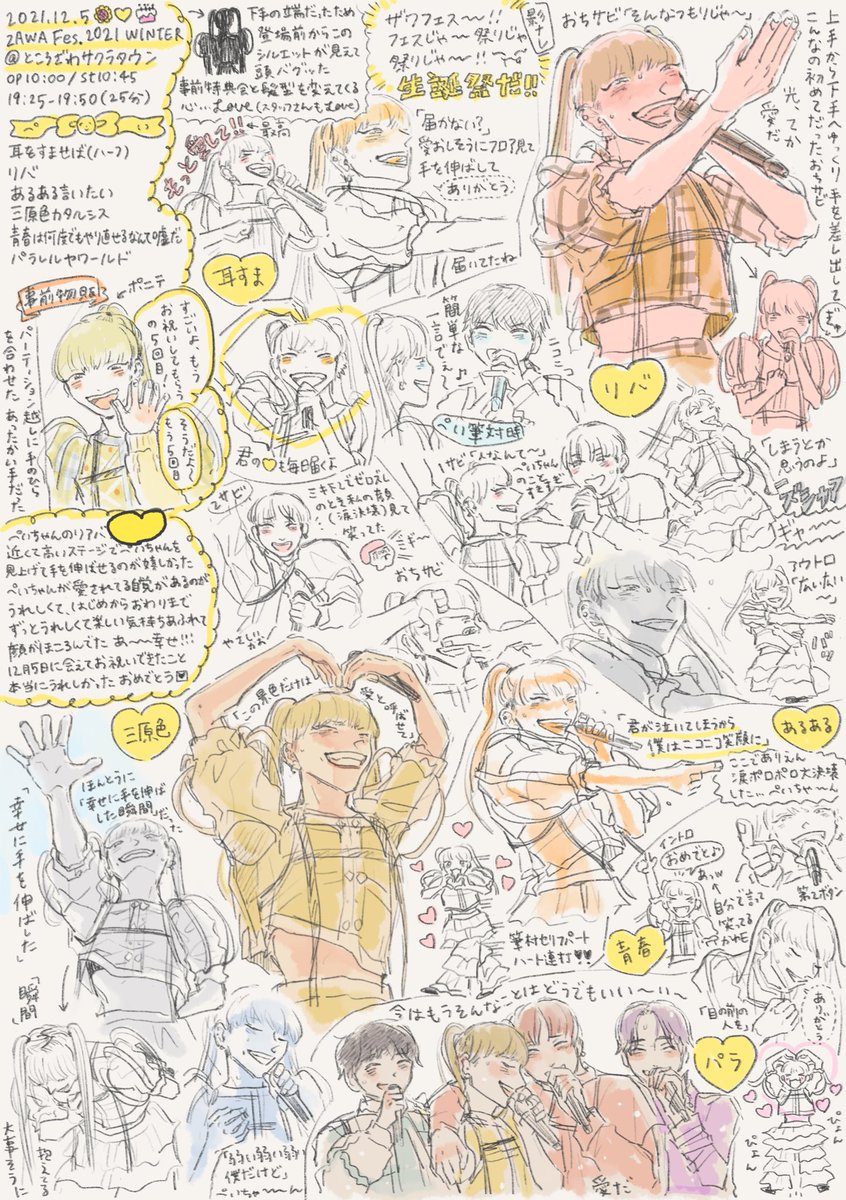 2021.12.5
ZAWA Fes. 2021 WINTER
@ところざわサクラタウン
OP10:00/St10:45
19:25-19:50(25分)
ぺ
い
耳をすませば(ハーフ)
リバ
あるある言いたい
三原色カタルシス
青春は何度でもやり直せるなんて嘘だ
パラレルヤワールド
下手の立端だったため
登場前からこの
シルエットが見えて
頭バグッた
事前特典会と髪型を変えてくる
心…Love(スタッフさんもLove)
←最高
もっと愛して!!
ザワフェス〜!!
フェスじゃ〜 祭りじゃ
祭りじゃ〜!!
影ナレ
生誕祭だ!!
「届かない?」
愛おしそうにフロア見て
手を伸ばして
ありがとう
届いてたね
耳すま
おちサビ「そんなつもりじゃ〜」
上手から下手へゆっくり手を差し出して
こんなの初めてだったおちサビ
光、てか
愛だ
ぎゅ
リバ
事前物販にて
←ポニテ
すごいよ、もう
お祝いしてもらう
の5回目!
そうだよ〜
もう5回目
パーティション越しに手のひら
を合わせた あったかい手だった
君の♡も毎日届くよ
簡単な
言でぇ〜♪
ニコニコ
ぺい筆対峙
1サビ「人なんて〜」
ぺいちゃん
のことも
すきすぎ
「しまうとか
思うのよ」
ズシャア
ギャ〜〜
2サビ
ミギ下上でゼロズレ
のとき私の顔
(涙決壊)見て
笑ってた
ミギ〜
おちサビ
やさしいかお
アウトロ
「広い広い
〜」
バッ
ぺいちゃんのリアバ
近くて高いステージでぺいちゃんを
見上げて手を伸ばせるのが嬉しかった
ぺいちゃんが愛されてる自覚があるのが
うれしくて、はじめからおわりまで
ずっとうれしくて楽しい気持ちあふれて
顔がほころんでた あ〜〜幸せ!!!
12月5日に会えてお祝いできたこと
本当にうれしかった おめでとう
三原色
「この景色だけは
愛と呼ばせて」
ほんとうに
「幸せに手を伸ばした瞬間」だった
「幸せに手を伸ばした」
「瞬間」
抱えてる
大事そうに
「君が泣いてしまうから
僕はニコニコ笑顔に」
あるある
ここでありえん
涙ポロポロ大決壊
した…ぺいちゃ〜ん
イントロ
おめでと♪
自分で言って
笑ってる
かわE
第2ボタン
筆村セリフパート
ハート連打!!
青春
「目の前の
人を」
ありがとう
「弱い弱い弱い
僕だけど」
ぺいちゃ〜〜ん
今はもうそんなことはどうでもいい〜い〜
パラ
愛だ
ぴょん
ぴょん